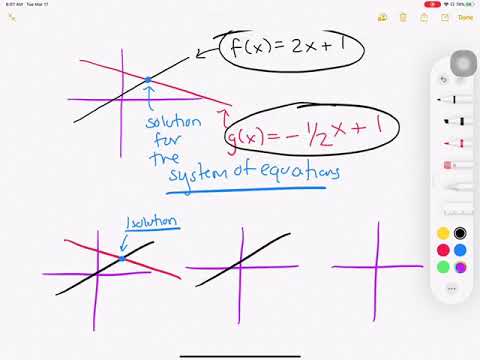 8:07 AM Tue Mar 17
Done
f(x) = 2x + 1
solution
for
the
g(x) = - 1/2 x + 1
system of equations
1 solution